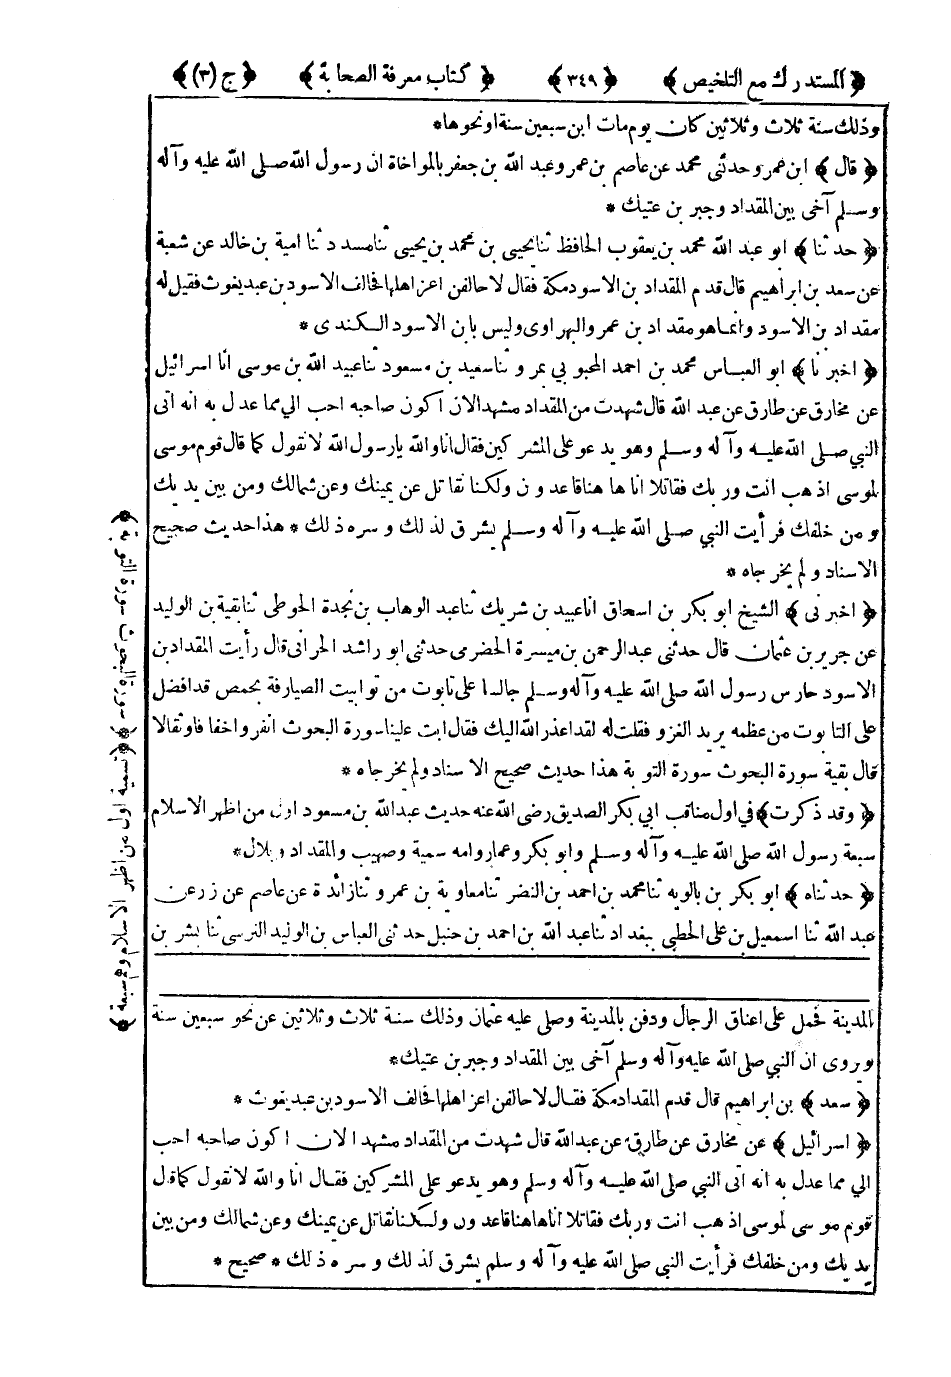 ﴿المستدرك مع التلخيص﴾ ﴿٣٤٩﴾ ﴿كتاب معرفة الصحابة﴾ ﴿ج (٣)﴾
وذلك سنة ثلاث وثلاثين كان يوم مات ابن سبعين سنة اونحوها*
﴿قال﴾ ابن عمر وحدثني محمد عن عاصم بن عمر وعبد الله بن جعفر بالمواخاة ان رسول الله صلى الله عليه وآله
وسلم آخى بين المقداد وجبر بن عتيك *
﴿حدثنا﴾ ابو عبد الله محمد بن يعقوب الحافظ ثنا يحيى بن محمد بن يحيى ثنا مسدد ثنا امية بن خالد عن شعبة
عن سعد بن ابراهيم قال قدم المقداد بن الاسود مكة فقال لاحالفن اعز اهلها فحالف الاسود بن عبد يغوث فقيل له
مقداد بن الاسود وانما هو مقداد بن عمرو البهراوى وليس بابن الاسود الكندى *
﴿اخبرنا﴾ ابو العباس محمد بن احمد المحبوبي بمرو ثنا سعيد بن مسعود ثنا عبيد الله بن موسى انا اسرائيل
عن مخارق عن طارق عن عبد الله قال شهدت من المقداد مشهدا لان اكون صاحبه احب الي مما عدل به انه اتى
النبي صلى الله عليه وآله وسلم وهو يدعو على المشركين فقال انا والله يا رسول الله لا نقول كما قال قوم موسى
لموسى اذهب انت وربك فقاتلا انا هاهنا قاعدون ولكنا نقاتل عن يمينك وعن شمالك ومن بين يديك
ومن خلفك فرأيت النبي صلى الله عليه وآله وسلم يشرق لذلك وسره ذلك * هذا حديث صحيح
الاسناد ولم يخرجاه *
﴿اخبرنى﴾ الشيخ ابو بكر بن اسحاق انا عبيد بن شريك ثنا عبد الوهاب بن نجدة الحوطى ثنا بقية بن الوليد
عن جرير بن عثمان قال حدثنى عبد الرحمن بن ميسرة الحضرمى حدثنى ابو راشد الحرانى قال رأيت المقداد بن
الاسود حارس رسول الله صلى الله عليه وآله وسلم جالسا على تابوت من توابيت الصيارفة بحمص قد افضل
على التابوت من عظمه يريد الغزو فقلت له لقد اعذر الله اليك فقال ابت علينا سورة البحوث انفروا خفافا وثقالا
قال بقية سورة البحوث سورة التوبة هذا حديث صحيح الاسناد ولم يخرجاه *
﴿وقد ذكرت﴾ في اول مناقب ابي بكر الصديق رضى الله عنه حديث عبد الله بن مسعود اول من اظهر الاسلام
سبعة رسول الله صلى الله عليه وآله وسلم وابو بكر وعمار وامه سمية وصهيب والمقداد وبلال*
﴿حدثناه﴾ ابو بكر بن بالويه ثنا محمد بن احمد بن النضر ثنا معاوية بن عمرو ثنا زائدة عن عاصم عن زر عن
عبد الله ثنا اسمعيل بن على الخطبي ببغداد ثنا عبد الله بن احمد بن حنبل حدثنى العباس بن الوليد النرسى ثنا بشر بن
المدينة فحمل على اعناق الرجال ودفن بالمدينة وصلى عليه عثمان وذلك سنة ثلاث وثلاثين عن نحو سبعين سنة
ويروى ان النبي صلى الله عليه وآله وسلم آخى بين المقداد وجبر بن عتيك*
﴿سعد﴾ بن ابراهيم قال قدم المقداد مكة فقال لاحالفن اعز اهلها فحالف الاسود بن عبد يغوث *
﴿اسرائيل﴾ عن مخارق عن طارق عن عبد الله قال شهدت من المقداد مشهدا لان اكون صاحبه احب
الي مما عدل به انه اتى النبي صلى الله عليه وآله وسلم وهو يدعو على المشركين فقال انا والله لا نقول كما قال
قوم موسى لموسى اذهب انت وربك فقاتلا انا هاهنا قاعدون ولكننا نقاتل عن يمينك وعن شمالك ومن بين
يديك ومن خلفك فرأيت النبي صلى الله عليه وآله وسلم يشرق لذلك وسره ذلك * صحيح *
﴿سورة البحوث سورة التوبة﴾ ﴿تسمية اول من اظهر الاسلام وهم سبعة﴾